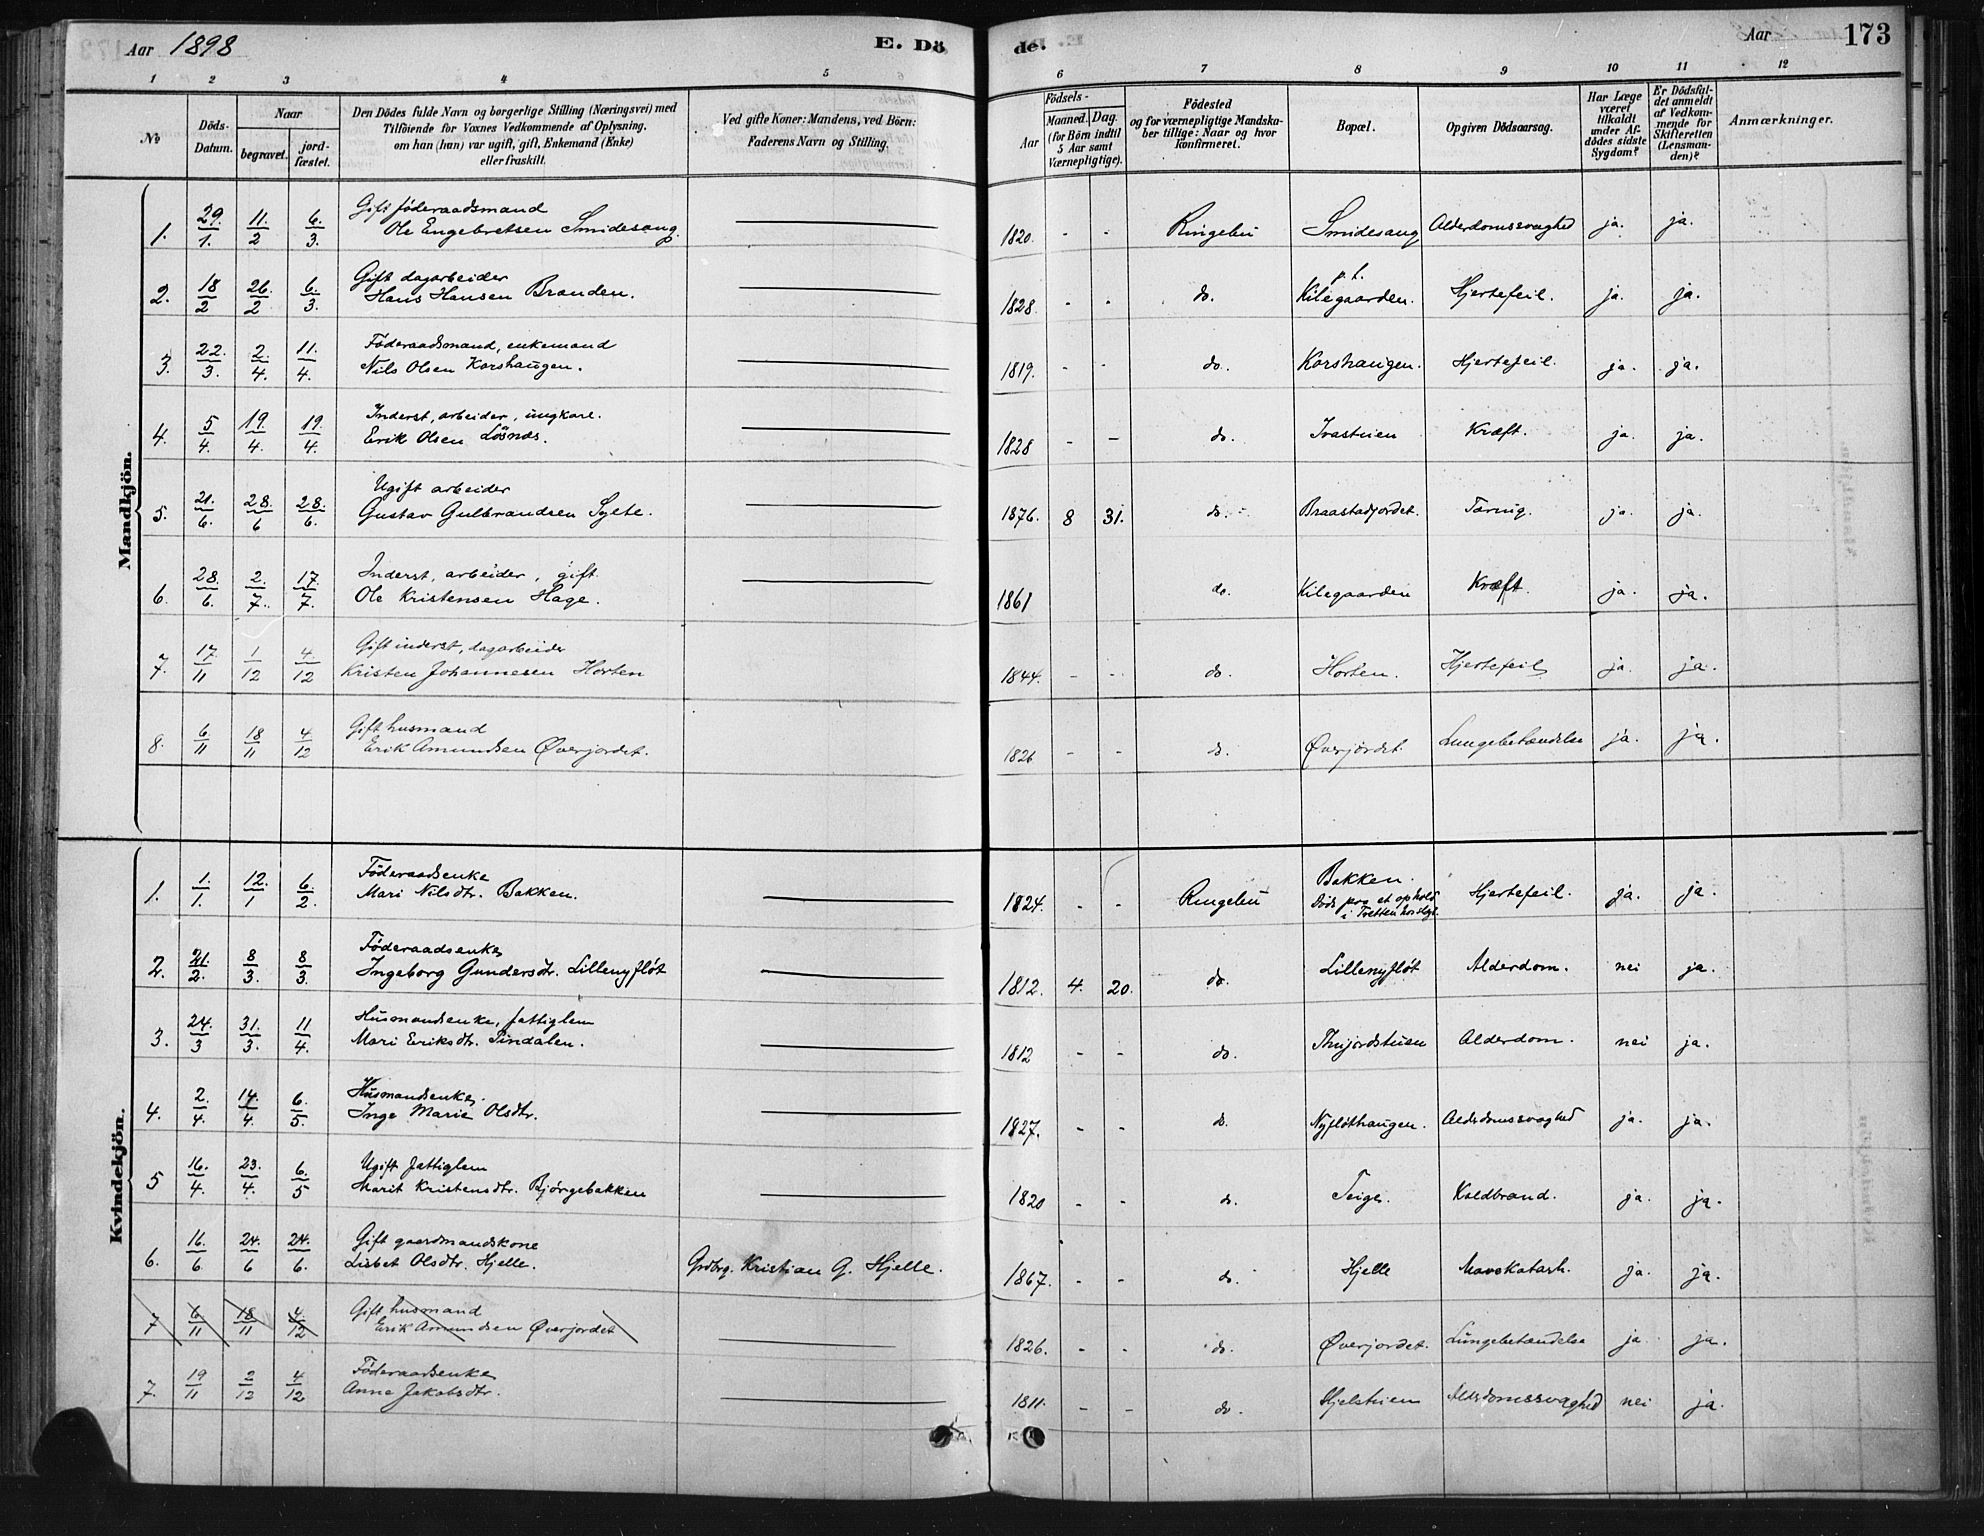 Aar 1898 E. Dö de. Aar 173
1 2 3 4 5 6 7 8 9 10 11 12
No
Döds-Datum.
Naar begravet. jord-fæstet.
Den Dödes fulde Navn og borgerlige Stilling (Næringsvei) med Tilföiende for Voxnes Vedkommende af Oplysning. om han (hun) var ugift, gift, Enkemand (Enke) eller fraskilt.
Ved gifte Koner: Mandens, ved Börn: Faderens Navn og Stilling.
Födsels-
Aar Maaned. Dag. (for Börn indtil 5 Aar samt Værnepligtige).
Födested og for værnepligtige Mandskaber tillige: Naar og hvor konfirmeret.
Bopæl.
Opgiven Dödsaarsag.
Har Læge været tilkaldt under Afdödes sidste Sygdom?
Er Dödsfaldet anmeldt af Vedkommende for Skifteretten (Lensmanden)?
Anmærkninger.
Mandkjön.
1. 29./1. 11./2 6./3. Gift föderaadsmand
Ole Engebretsen Smidesang. 1820. - - Ringebu Smidesang Alderdomssvaghed ja. ja.
2. 18/2 26./2 6./3. Gift dagarbeider
Hans Hansen Branden. 1828. - - do. p.t. Kilegaarden. Hjertefeil. ja. ja.
3. 22./3. 2./4. 11./4. Föderaadsmand, enkemand
Nils Olsen Korshaugen. 1819. - - do. Korshaugen. Hjertefeil. ja. ja.
4. 5/4. 19./4. 19./4. Inderst, arbeider, ungkarl.
Erik Olsen Lösnæs. 1828 - - do. Ivastuen Kræft. ja. ja.
5. 21./6. 28./6 28./6. Ugift arbeider
Gustav Gulbrandsen Sylte. 1876. 8 31. do. Braastadjordet. Tæring. ja. ja.
6. 28./6. 2./7. 17./7. Inderst, arbeider, gift
Ole Kristensen Hage. 1861 do. Kilegaarden Kræft. ja. ja.
7. 17./11 1/12 4./12 Gift inderst, dagarbeider
Kristen Johannesen Horten 1844. - - do. Horten. Hjertefeil ja. ja.
8. 6./11 18/11 4/12 Gift husmand
Erik Amundsen Øverjordet. 1826 - - do. Øverjordet. Lungebetændelse ja. ja.
Kvindekjön.
1. 1./1. 12./1 6./2. Föderaadsenke
Mari Nilsdtr. Bakken. 1824. - - Ringebu Bakken.
Död paa et ophold
i Tretten Hjertefeil. ja. ja
2. 21./2. 8/3. 8/3. Föderaadsenke
Ingeborg Gundersdtr. Lillenyflöt 1812. 4. 20. do. Lillenyflöt Alderdom. nei ja.
3. 24./3 31./3. 11/4. Husmandsenke, fattiglem
Mari Eriksdtr. Sindalen. 1812 - - do. Thujordstuen Alderdom. nei ja.
4. 2./4. 14./4. 6./5. Husmandsenke.
Inge Marie Olsdtr. 1827. - - do. Nyflöthaugen. Alderdomssvaghed ja. ja.
5 16./4. 23./4. 6./5 Ugift fattiglem
Marit Kristensdtr. Bjørgebakken 1820 - - do. Teige. Koldbrand. ja. ja.
6. 16./6 24./6 24./6. Gift gaardmandskone
Lisbet Olsdtr. Hjelle. Grdbrg. Kristian G. Hjelle. 1867. - - do. Hjelle Mavekatarh. ja. ja.
7 6/11 18/11 4/12 Gift husmand
Erik Amundsen Øverjordet 1826. - - do. Øverjordet. Lungebetændelse ja ja.
7. 19/11 2/12 4/12 Föderaadsenke
Anne Jakobsdtr. 1811. - - do. Hjelstuen Alderdomssvaghed nei ja.